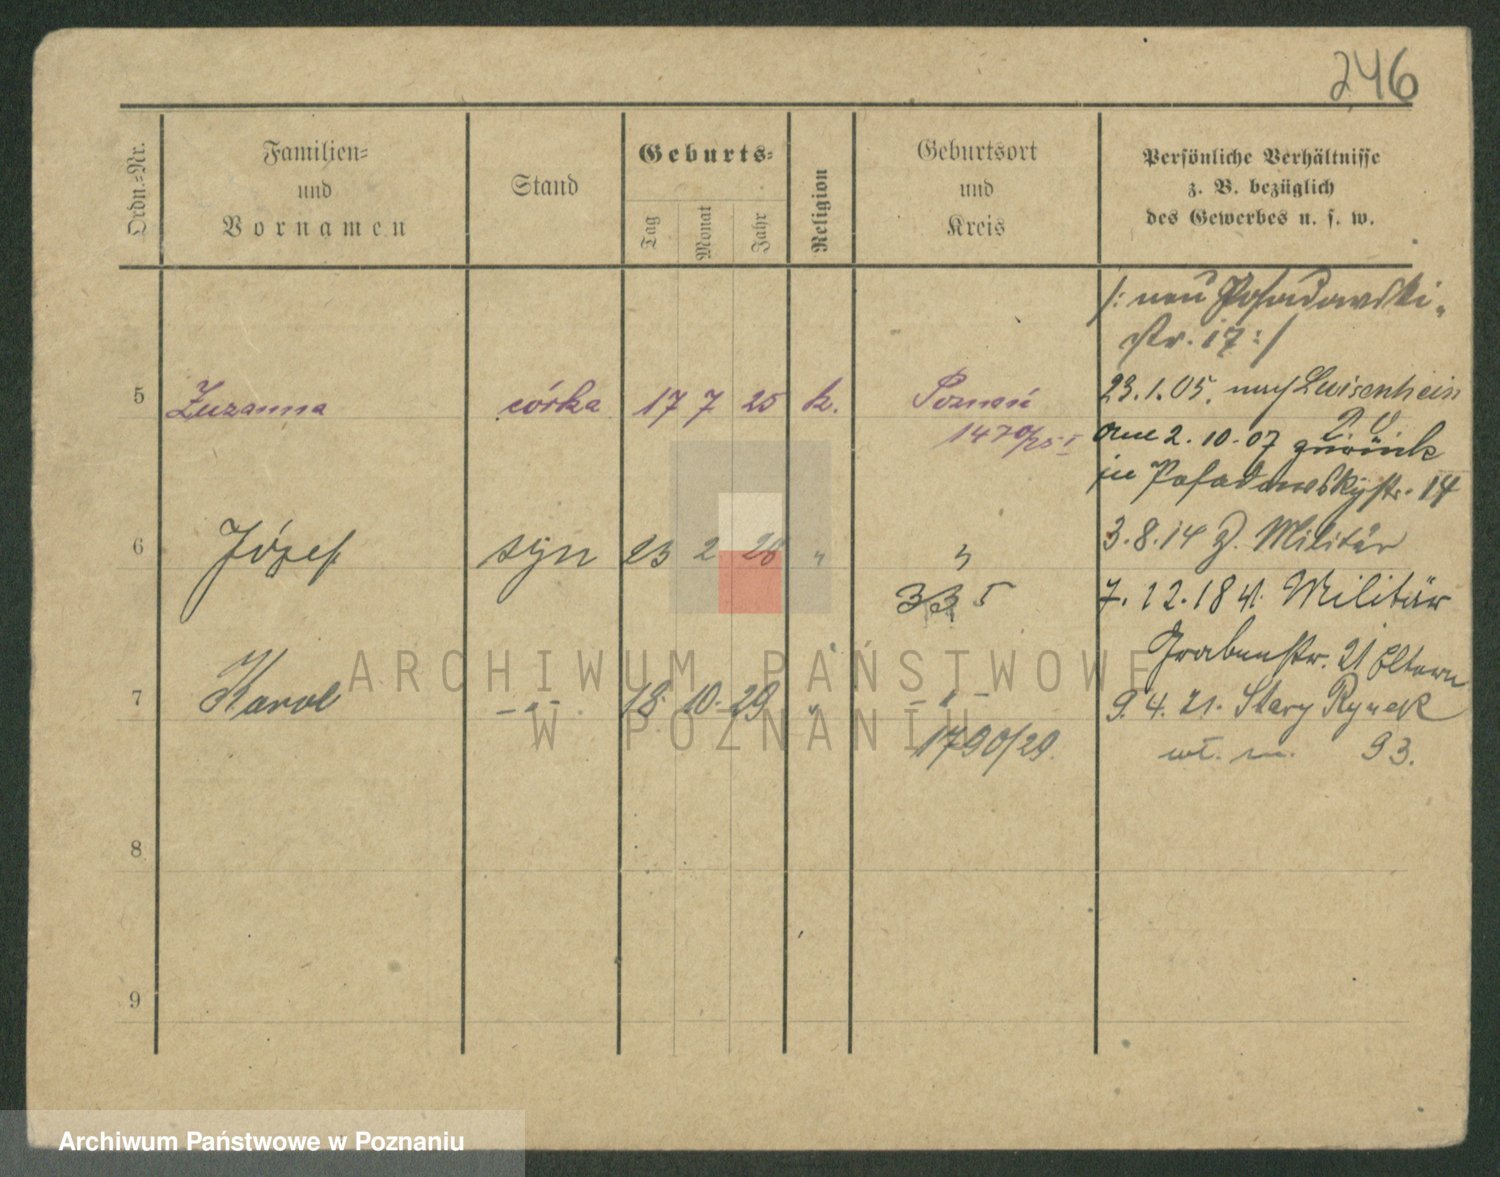 246
Ordn.-Nr.
Familien-
und
Vornamen
Stand
Geburts-
Tag
Monat
Jahr
Religion
Geburtsort
und
Kreis
Persönliche Verhältnisse
z. B. bezüglich
des Gewerbes u. s. w.
/: neu Posadowski-
str. 17 :/
5 Zuzanna córka 17 7 25 k. Poznań
1470/25 I
23.1.05. nach Luisenhain
P. O.
am 2.10.07 zurück
in Posadowskystr. 14
6 Józef syn 23 2 28 "
335
3.8.14 z. Militär
7.12.18 v. Militär
Grabenstr. 21 Eltern
7 Karol -"- 18. 10. 29 " -"-
1790/29.
9.4.21. Stary Rynek
wł. m. 93.
8
9
ARCHIWUM PAŃSTWOWE
W POZNANIU
Archiwum Państwowe w Poznaniu